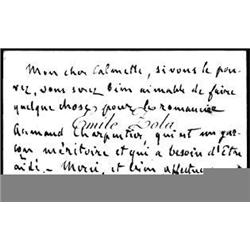 Mon cher Calmette, si vous le pou-
vez, vous serez bien aimable de faire
quelque chose pour le romancier
Emile Zola
Armand Charpentier, qui est un gar-
con méritoire et qui a besoin d'être
aidé. – Merci, et bien affectueu